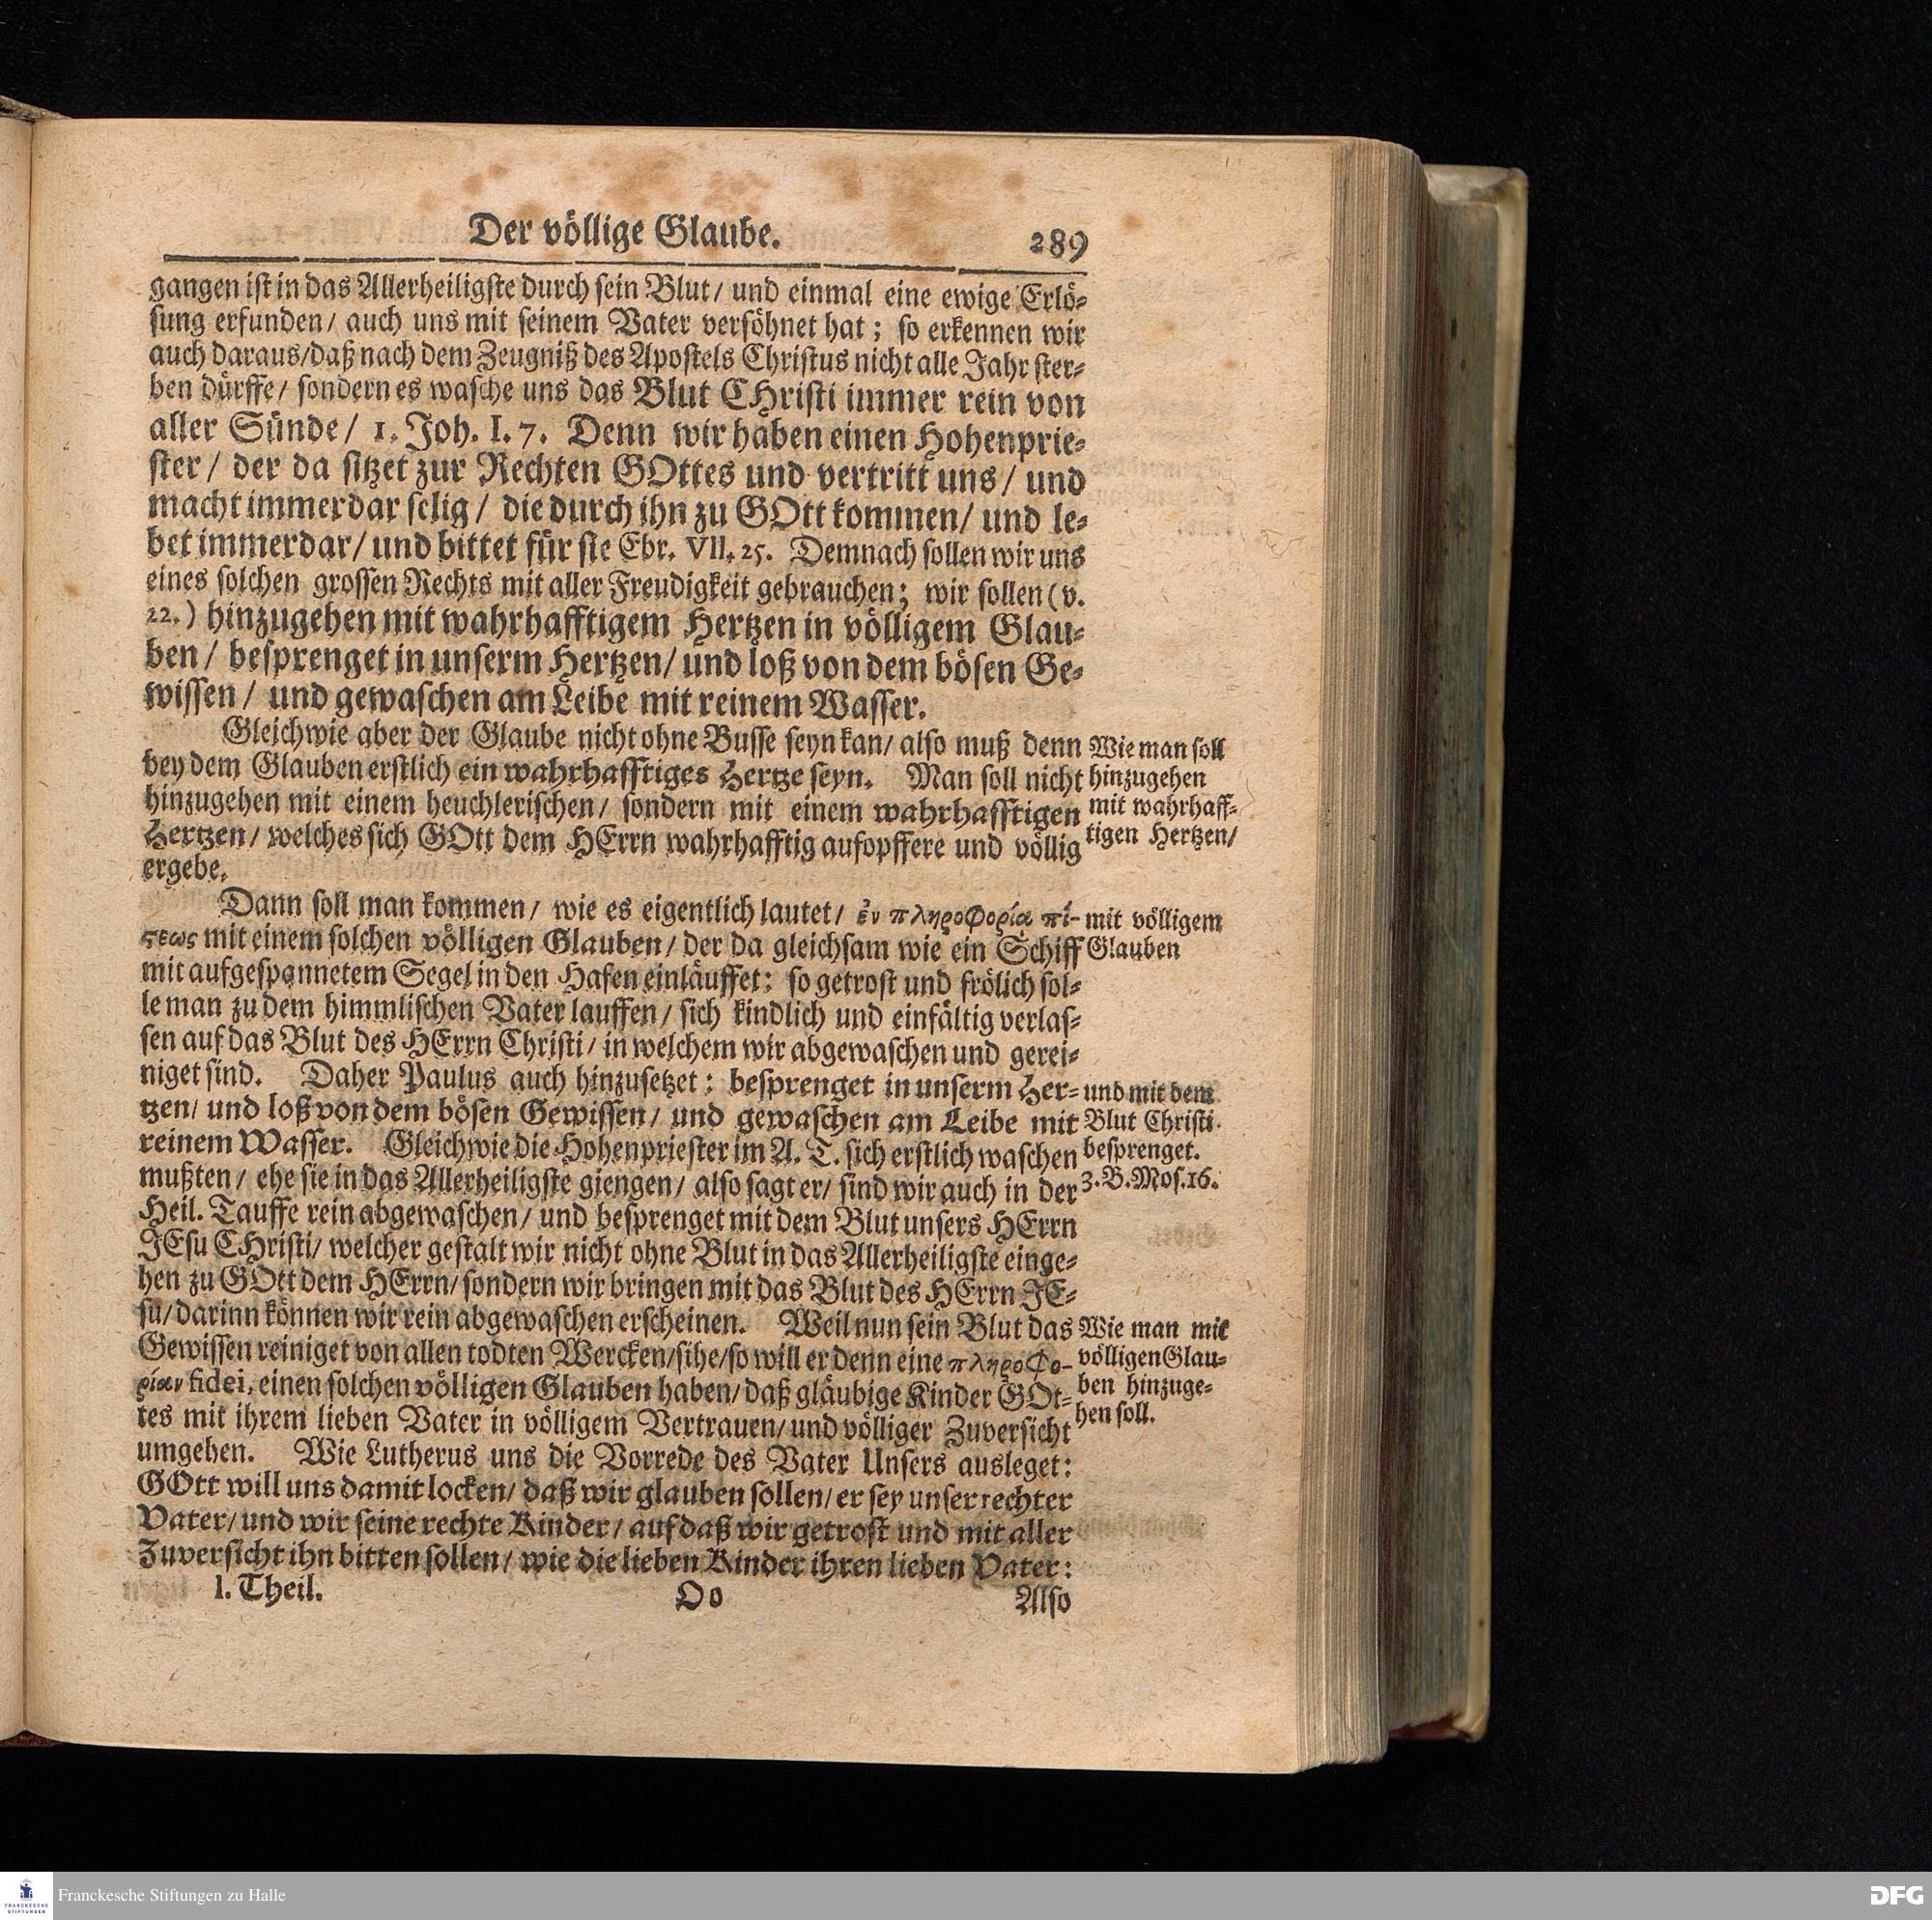 Der völlige Glaube. 289
gangen ist in das Allerheiligste durch sein Blut/ und einmal eine ewige Erlö-
sung erfunden/ auch uns mit seinem Vater versöhnet hat; so erkennen wir
auch daraus/daß nach dem Zeugniß des Apostels Christus nicht alle Jahr ster-
ben dürffe/ sondern es wasche uns das Blut CHristi immer rein von
aller Sünde/ 1. Joh. I. 7. Denn wir haben einen Hohenprie-
ster/ der da sitzet zur Rechten GOttes und vertritt uns/ und
macht immerdar selig/ die durch ihn zu GOtt kommen/ und le-
bet immerdar/ und bittet für sie Ebr. VII. 25. Demnach sollen wir uns
eines solchen grossen Rechts mit aller Freudigkeit gebrauchen; wir sollen (v.
22.) hinzugehen mit wahrhafftigem Hertzen in völligem Glau-
ben/ besprenget in unserm Hertzen/ und loß von dem bösen Ge-
wissen/ und gewaschen am Leibe mit reinem Wasser.
Gleichwie aber der Glaube nicht ohne Busse seyn kan/ also muß denn
bey dem Glauben erstlich ein wahrhafftiges Hertze seyn. Man soll nicht
hinzugehen mit einem heuchlerischen/ sondern mit einem wahrhafftigen
Hertzen/ welches sich GOtt dem HErrn wahrhafftig aufopffere und völlig
ergebe.
Wie man soll
hinzugehen
mit wahrhaff-
tigen Hertzen/
Dann soll man kommen/ wie es eigentlich lautet/ ἐν πληροφορίᾳ πί-
ϛεως mit einem solchen völligen Glauben/ der da gleichsam wie ein Schiff
mit aufgespannetem Segel in den Hafen einläuffet: so getrost und frölich sol-
le man zu dem himmlischen Vater lauffen/ sich kindlich und einfältig verlas-
sen auf das Blut des HErrn Christi/ in welchem wir abgewaschen und gerei-
niget sind. Daher Paulus auch hinzusetzet: besprenget in unserm Her-
tzen/ und loß von dem bösen Gewissen/ und gewaschen am Leibe mit
reinem Wasser. Gleichwie die Hohenpriester im A. T. sich erstlich waschen
mußten/ ehe sie in das Allerheiligste giengen/ also sagt er/ sind wir auch in der
Heil. Tauffe rein abgewaschen/ und besprenget mit dem Blut unsers HErrn
JEsu CHristi/ welcher gestalt wir nicht ohne Blut in das Allerheiligste einge-
hen zu GOtt dem HErrn/ sondern wir bringen mit das Blut des HErrn JE-
su/ darinn können wir rein abgewaschen erscheinen. Weil nun sein Blut das
Gewissen reiniget von allen todten Wercken/sihe/so will er denn eine πληροφο-
ρίαν fidei, einen solchen völligen Glauben haben/ daß gläubige Kinder GOt-
tes mit ihrem lieben Vater in völligem Vertrauen/ und völliger Zuversicht
umgehen. Wie Lutherus uns die Vorrede des Vater Unsers ausleget:
GOtt will uns damit locken/ daß wir glauben sollen/ er sey unser rechter
Vater/ und wir seine rechte Kinder/ auf daß wir getrost und mit aller
Zuversicht ihn bitten sollen/ wie die lieben Kinder ihren lieben Vater:
mit völligem
Glauben
und mit dem
Blut Christi
besprenget.
3. B. Mos. 16.
Wie man mit
völligen Glau-
ben hinzuge-
hen soll.
I. Theil. Oo Also
FRANCKESCHE
STIFTUNGEN
Franckesche Stiftungen zu Halle
DFG